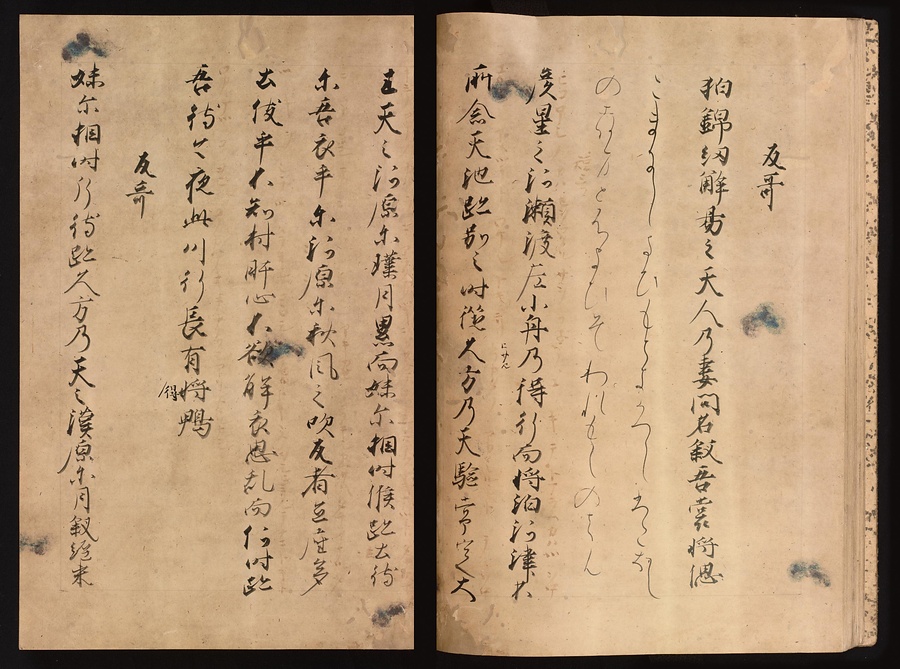 反哥
狛錦紐解易之天人乃妻問夕叙吾裳将偲
こまにしきひもときかはしひこほし
のつまとふよひそわれもしのはん
彦星之河瀬渡左小舟乃得行而将泊河津石
所念天地跡別之時従久方乃天驗常定大
王天之河原尓璞月累而妹尓相時候跡立待
尓吾衣手尓河原尓秋風之吹反者立座多
土伎乎不知村肝心不欲解衣思乱而何時跡
吾待今夜此川行長有将鴨
得
反哥
妹尓相時片待跡久方乃天之漢原尓月叙経来